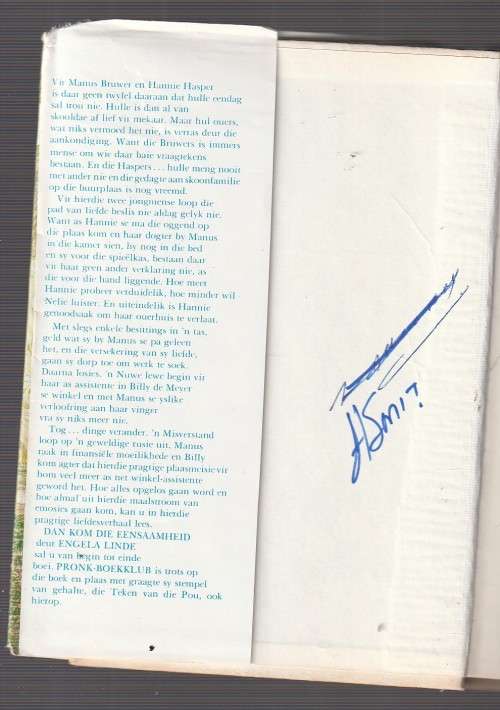 Vir Manus Bruwer en Hannie Hasper
is daar geen twyfel daaraan dat hulle eendag
sal trou nie. Hulle is dan al van
skooldae af lief vir mekaar. Maar hul ouers,
wat niks vermoed het nie, is verras deur die
aankondiging. Want die Bruwers is immers
mense om wie daar baie vraagtekens
bestaan. En die Haspers... hulle meng nooit
met ander nie en die gedagte aan skoonfamilie
op die buurplaas is nog vreemd.
Vir hierdie twee jongmense loop die
pad van liefde beslis nie aldag gelyk nie.
Want as Hannie se ma die oggend op
die plaas kom en haar dogter by Manus
in die kamer sien, hy nog in die bed
en sy voor die spieëlkas, bestaan daar
vir haar geen ander verklaring nie, as
die voor die hand liggende. Hoe meer
Hannie probeer verduidelik, hoe minder wil
Nelie luister. En uiteindelik is Hannie
genoodsaak om haar ouerhuis te verlaat.
Met slegs enkele besittings in 'n tas,
geld wat sy by Manus se pa geleen
het, en die versekering van sy liefde,
gaan sy dorp toe om werk te soek.
Daarna losies, 'n Nuwe lewe begin vir
haar as assistente in Billy de Meyer
se winkel en met Manus se yslike
verloofring aan haar vinger
vra sy niks meer nie.
Tog... dinge verander. 'n Misverstand
loop op 'n geweldige rusie uit. Manus
raak in finansiële moeilikhede en Billy
kom agter dat hierdie pragtige plaasmeisie vir
hom veel meer as net winkel-assistente
geword het. Hoe alles opgelos gaan word en
hoe almal uit hierdie maalstroom van
emosies gaan kom, kan u in hierdie
pragtige liefdesverhaal lees.
DAN KOM DIE EENSAAMHEID
deur ENGELA LINDE
sal u van begin tot einde
boei. PRONK-BOEKKLUB is trots op
die boek en plaas met graagte sy stempel
van gehalte, die Teken van die Pou, ook
hierop.
HSMIT